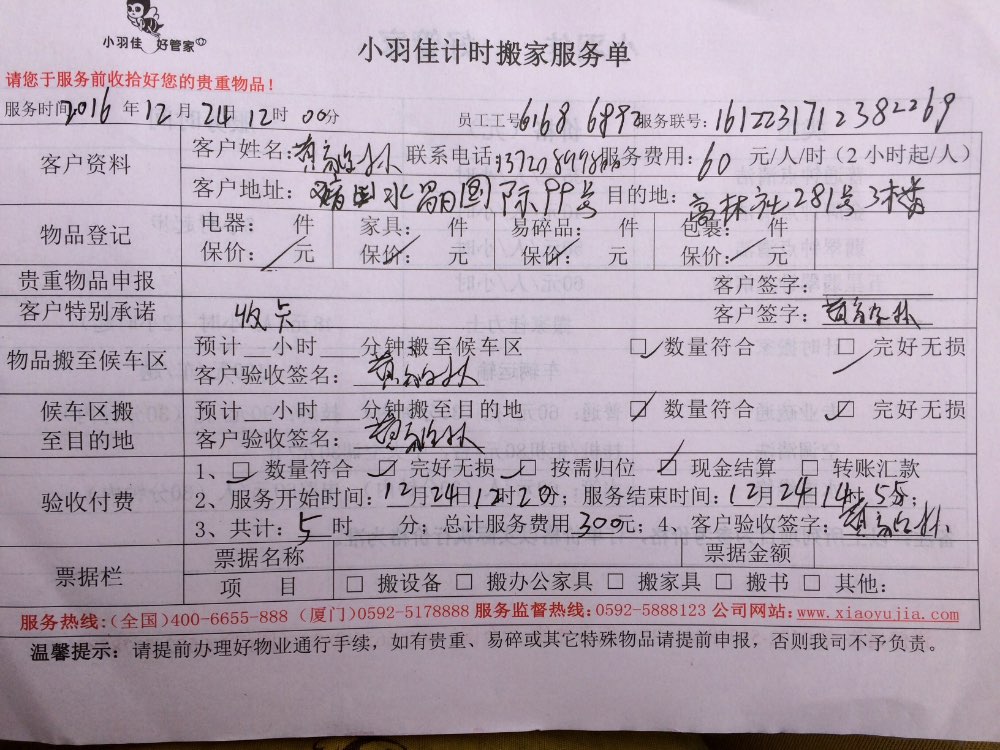 小羽佳 好管家
小羽佳计时搬家服务单
请您于服务前收拾好您的贵重物品！
服务时间2016年12月24日12时00分 员工工号6168 6892服务联号：161223171238 2269
客户资料 客户姓名： 联系电话： 服务费用：60元/人/时（2小时起/人）
客户地址： 水晶国际99号 目的地：高林社281号3楼
物品登记 电器： 件 家具： 件 易碎品： 件 包裹： 件
保价： 元 保价： 元 保价： 元 保价： 元
贵重物品申报 客户签字：
客户特别承诺 收卡 客户签字：
物品搬至候车区 预计 小时 分钟搬至候车区 □ 数量符合 □ 完好无损
客户验收签名：
候车区搬至目的地 预计 小时 分钟搬至目的地 □ 数量符合 □ 完好无损
客户验收签名：
验收付费 1、□ 数量符合 □ 完好无损 □ 按需归位 □ 现金结算 □ 转账汇款
2、服务开始时间：12月24日12时20分；服务结束时间：12月24日14时55分；
3、共计：5时 分；总计服务费用300元；4、客户验收签字：
票据栏 票据名称 票据金额
项 目 □ 搬设备 □ 搬办公家具 □ 搬家具 □ 搬书 □ 其他：
服务热线：（全国）400-6655-888（厦门）0592-5178888 服务监督热线：0592-5888123 公司网站：www.xiaoyujia.com
温馨提示：请提前办理好物业通行手续，如有贵重、易碎或其它特殊物品请提前申报，否则我司不予负责。